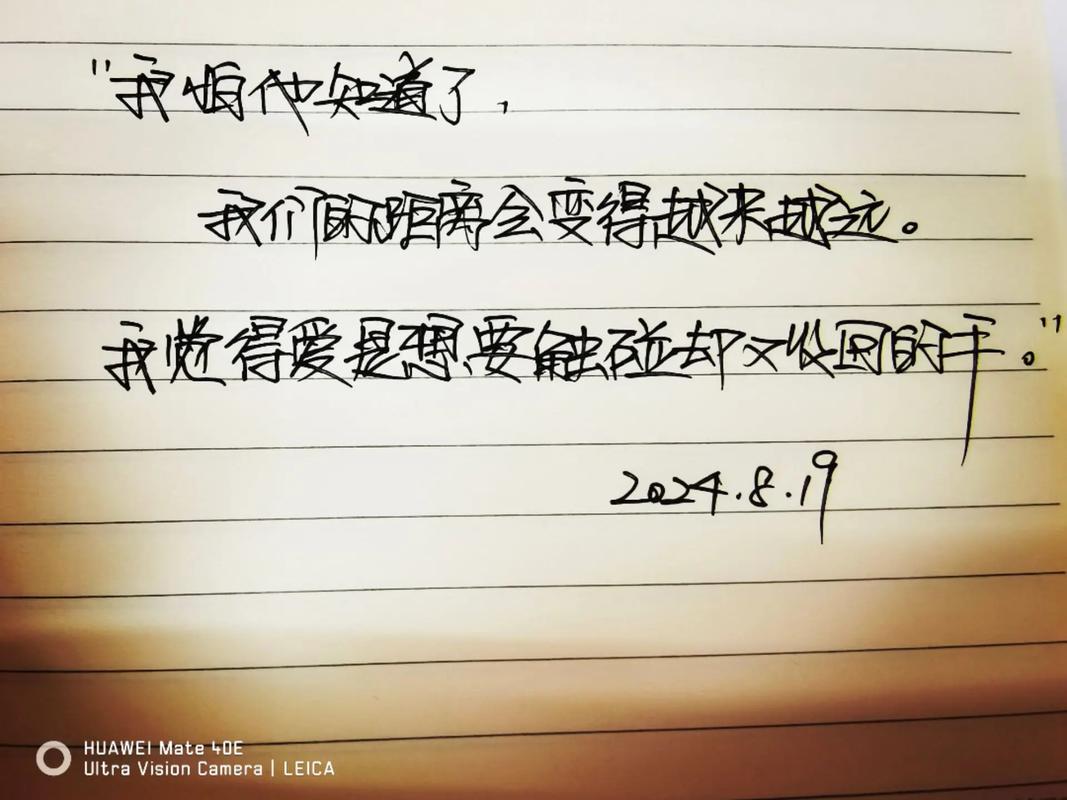 "我怕他知道了，
我们的距离会变得越来越远。
我觉得爱是想要触碰却又收回的手。"
2024.8.19
HUAWEI Mate 40E
Ultra Vision Camera | LEICA